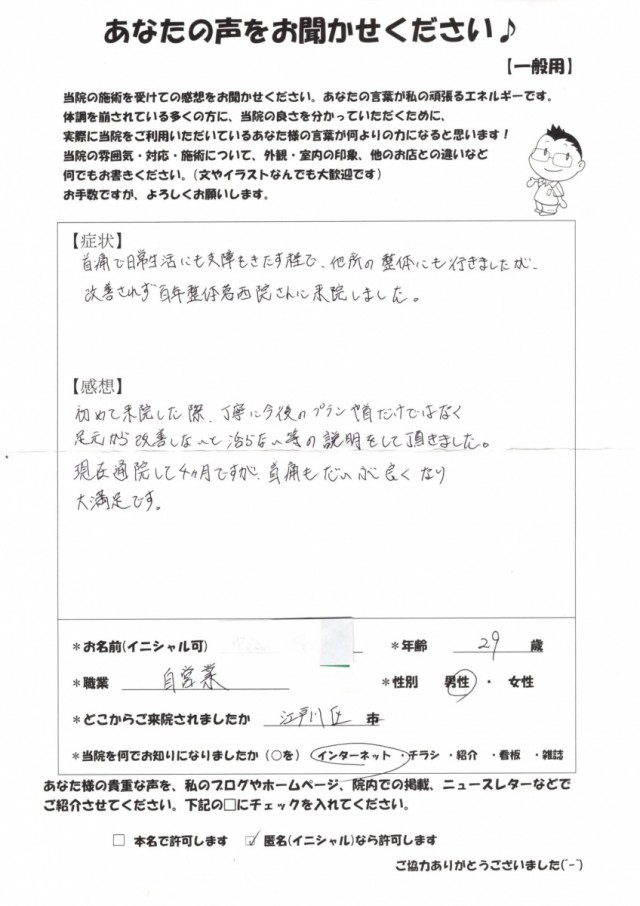 あなたの声をお聞かせください♪
【一般用】
当院の施術を受けての感想をお聞かせください。あなたの言葉が私の頑張るエネルギーです。
体調を崩されている多くの方に、当院の良さを分かっていただくために、
実際に当院をご利用いただいているあなた様の言葉が何よりの力になると思います！
当院の雰囲気・対応・施術について、外観・室内の印象、他のお店との違いなど
何でもお書きください。(文やイラストなんでも大歓迎です)
お手数ですが、よろしくお願いします。
【症状】
首痛で日常生活にも支障もきたす程で、他所の整体にも行きましたが、
改善されず百年整体葛西院さんに来院しました。
【感想】
初めて来院した際、丁寧に今後のプランや首だけではなく
足元から改善しないと治らない等の説明をして頂きました。
現在通院して4ヶ月ですが、首痛もだいぶ良くなり
大満足です。
*お名前(イニシャル可) *年齢 29 歳
*職業 自営業 *性別 男性 ・ 女性
*どこからご来院されましたか 江戸川区 市
*当院を何でお知りになりましたか（○を） インターネット ・チラシ ・紹介 ・看板 ・雑誌
あなた様の貴重な声を、私のブログやホームページ、院内での掲載、ニュースレターなどで
ご紹介させてください。下記の□にチェックを入れてください。
□ 本名で許可します ☑ 匿名(イニシャル)なら許可します
ご協力ありがとうございました(^-^)